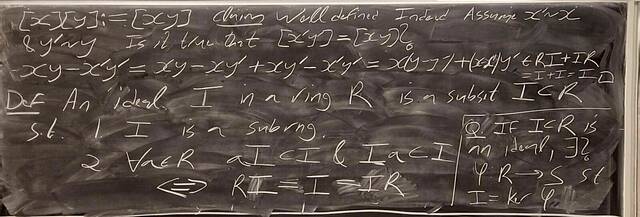 [x][y] := [xy] Claim Well defined Indeed Assume x'~x
& y'~y Is it true that [x'y'] = [xy]?
xy-x'y' = xy-xy'+xy'-x'y' = x(y-y')+(x-x')y' ∈ RI+IR
= I+I = I □
Def An ideal I in a ring R is a subset I⊂R
s.t. 1. I is a subrng.
2 ∀a∈R aI⊂I & Ia⊂I
⟺ RI = I = IR
Q IF I⊂R is
an ideal, ∃?
φ R → S st
I = ker φ